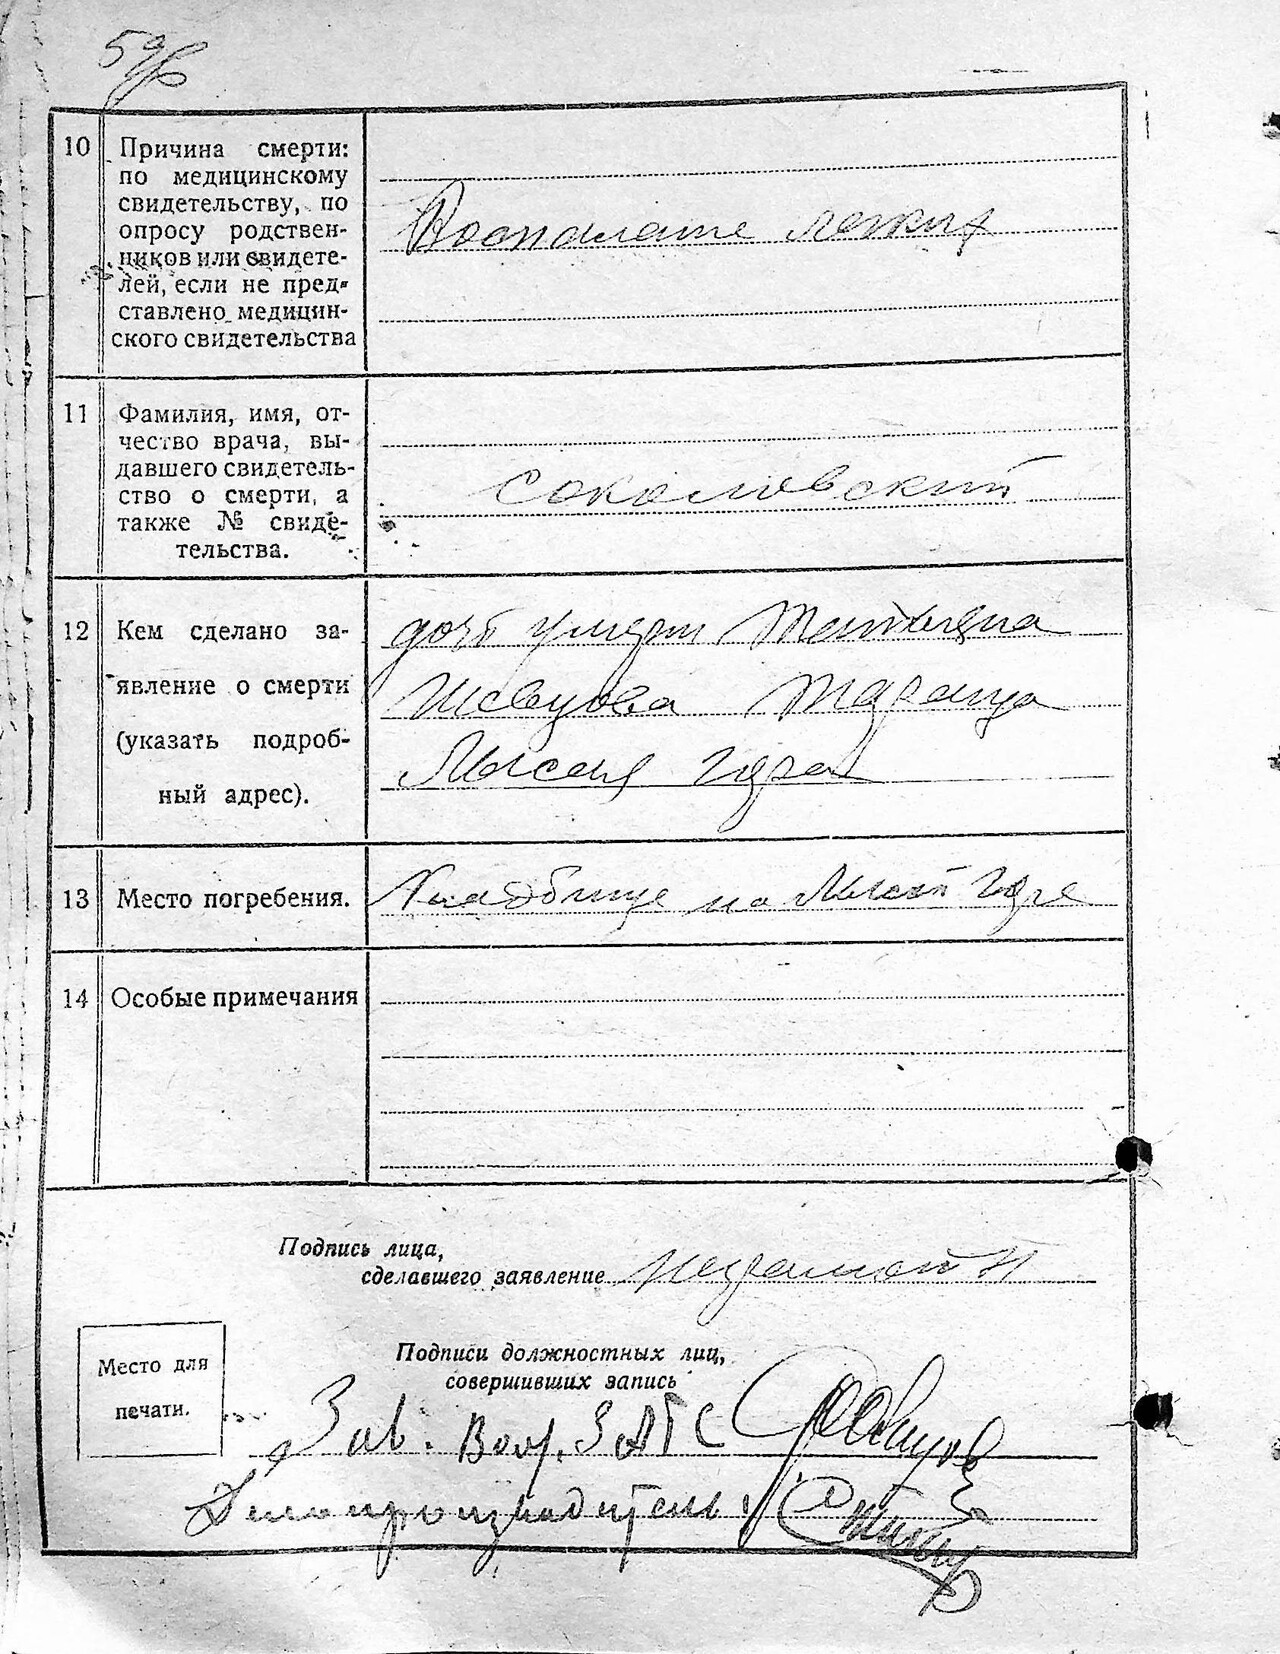 59об
10 Причина смерти:
по медицинскому
свидетельству, по
опросу родствен-
ников или свидете-
лей, если не пред-
ставлено медицин-
ского свидетельства
Воспаление легких
11 Фамилия, имя, от-
чество врача, вы-
давшего свидетель-
ство о смерти, а
также № свиде-
тельства.
Соколовский
12 Кем сделано за-
явление о смерти
(указать подроб-
ный адрес).
дочь умерш Татьяна
Шевцова
Лысая гора
13 Место погребения.
Кладбище на Лысой Горе
14 Особые примечания
Подпись лица,
сделавшего заявление
Место для
печати.
Подписи должностных лиц,
совершивших запись
Зав. ЗАГС
Делопроизводитель